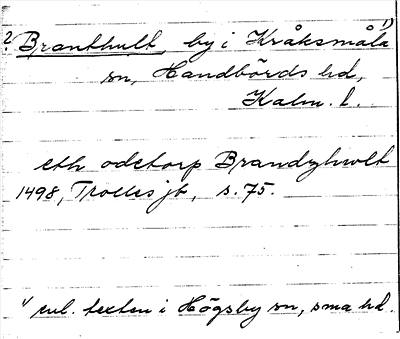 2. Branthult, by i Kråksmåla 1)
sn, Handbörds hd,
Kalm. l.
eth odetorp Brandzhwlt
1498, Trolles jb, s. 75.
1) enl. texten i Högsby sn, sma hd.